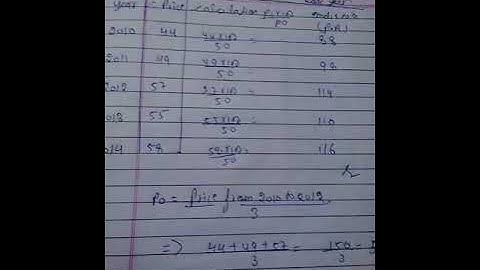 year Price calculation P1x10 index no
Po (P1R)
2010 44 44x10 / 50 = 88
2011 49 49x10 / 50 = 98
2012 57 57x10 / 50 = 114
2013 55 55x10 / 50 = 110
2014 58 58x10 / 50 = 116
Po = Price from 2010 to 2012
3
=> 44+49+57 = 150 =
3 3